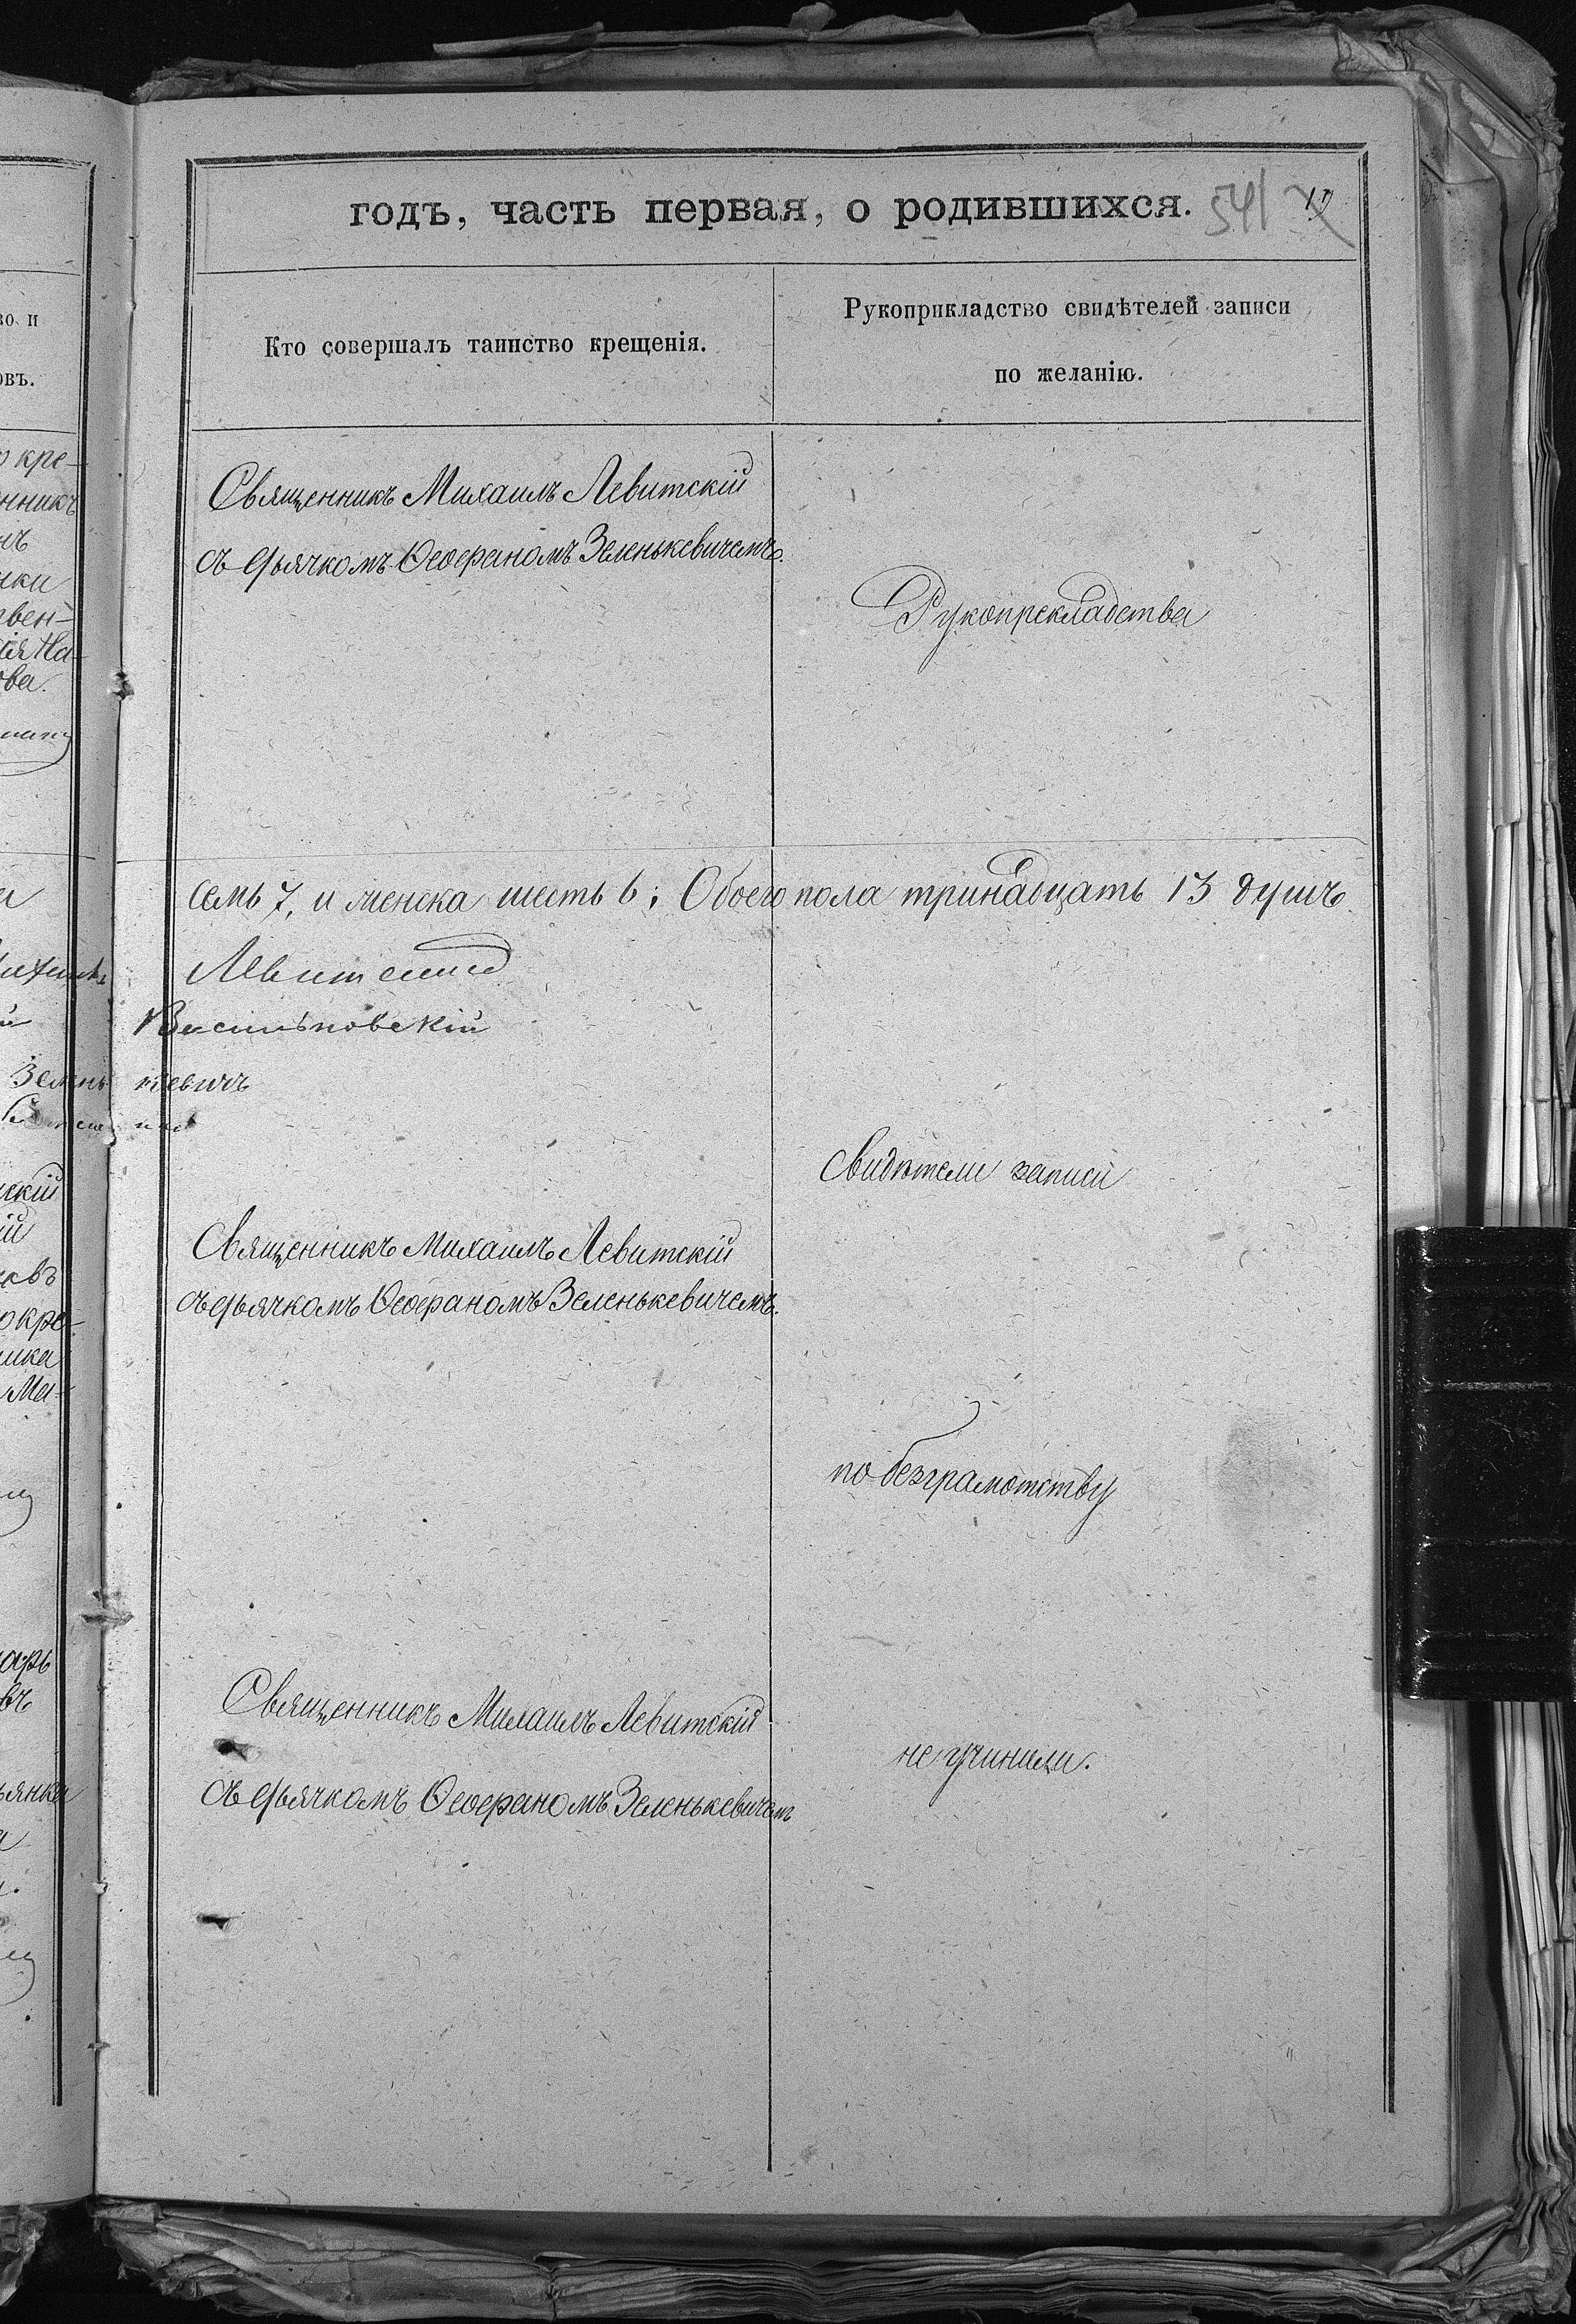 годъ, часть первая, о родившихся. 541
во и
овъ.
Кто совершалъ таинство крещенія.
Рукоприкладство свидѣтелей записи
по желанію.
Священникъ Михаилъ Левитскій
съ дьячкомъ Ѳеофаномъ Зеленькевичемъ.
Рукопрекладства
семь 7, и женска шесть 6; Обоего пола тринадцать 13 душъ
Левитскій
Васильковскій
Зеленькевичъ
Свидѣтели записи
Священникъ Михаилъ Левитскій
съ дьячкомъ Ѳеофаномъ Зеленькевичемъ.
по безграмотству
Священникъ Михаилъ Левитскій
съ дьячкомъ Ѳеофаномъ Зеленькевичемъ
не учинили.